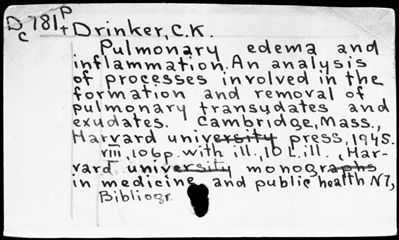 Dc 781 Pt Drinker, C.K.
Pulmonary edema and
inflammation. An analysis
of processes involved in the
formation and removal of
pulmonary transudates and
exudates. Cambridge, Mass.,
Harvard university press, 1945.
VIII, 106p. with ill., 10 L. ill. (Har-
vard university monographs
in medicine and public health N7,
Bibliogr.